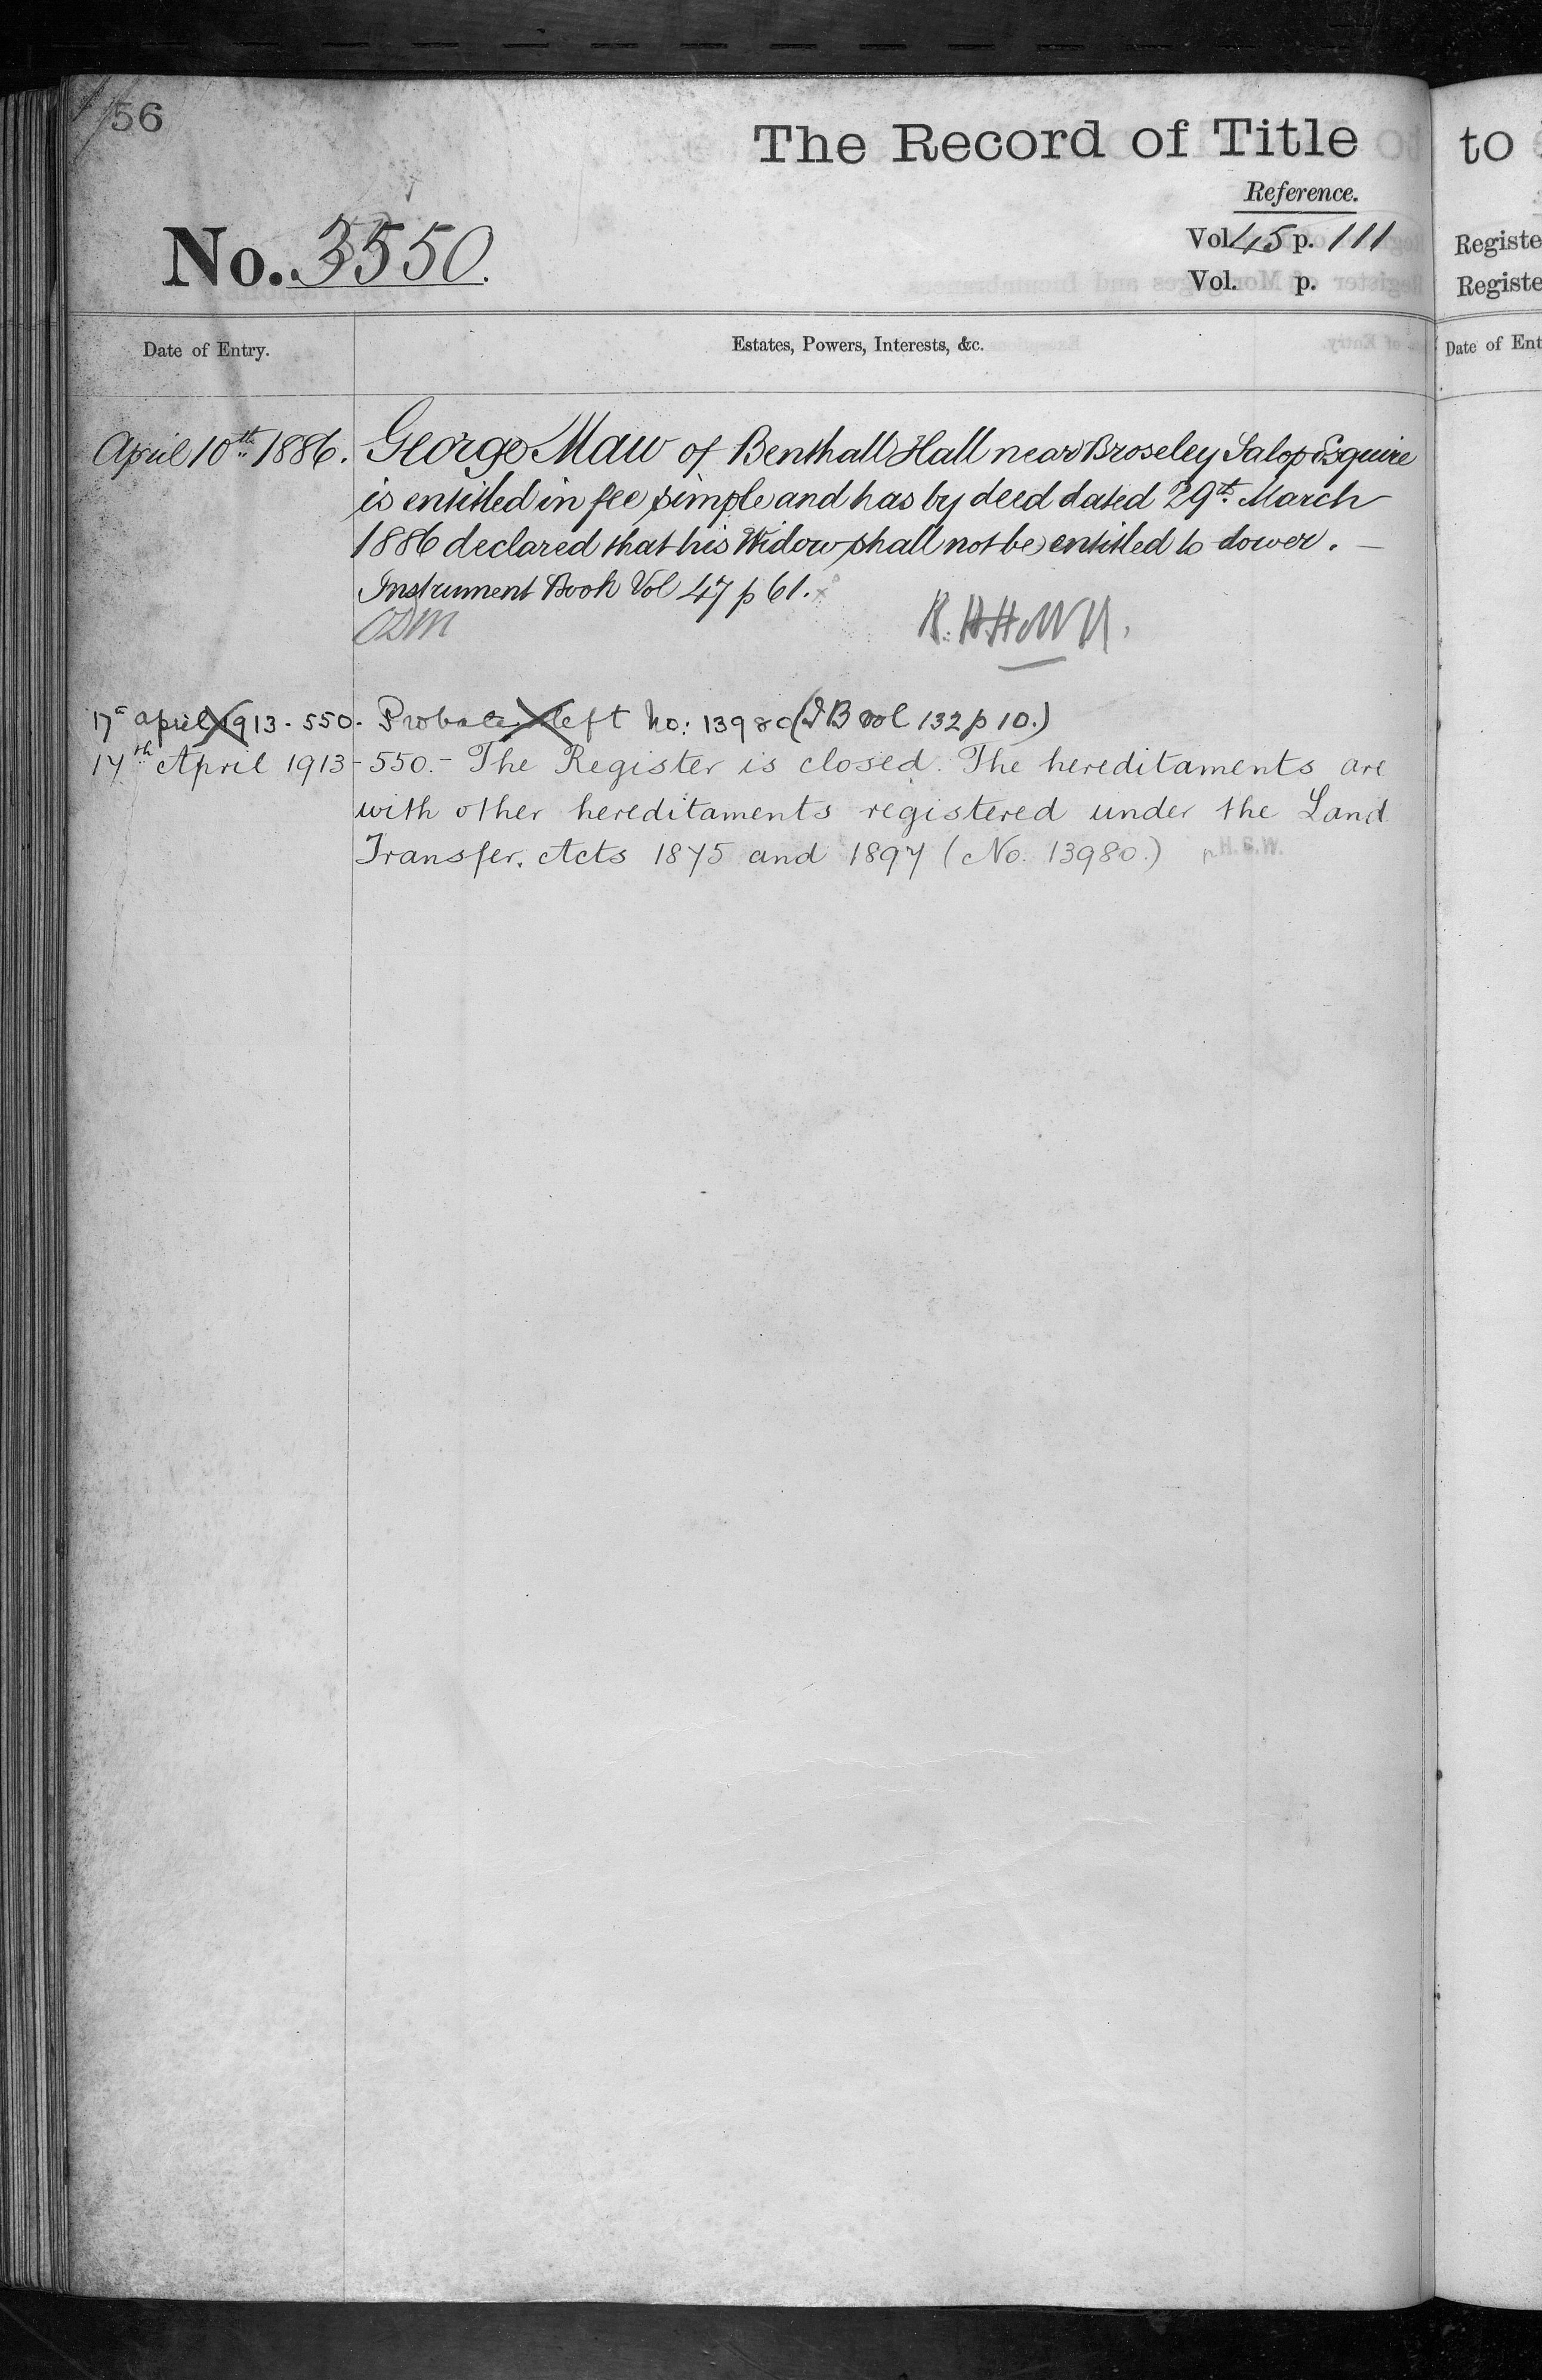 56
The Record of Title
Reference.
No. 3550.
Vol. 45 p. 111
Vol. p.
Date of Entry.
Estates, Powers, Interests, &c.
April 10th 1886. George Maw of Benthall Hall near Broseley Salop Esquire
is entitled in fee simple and has by deed dated 29th March
1886 declared that his Widow shall not be entitled to dower. —
Instrument Book Vol 47 p 61.
17 April 1913 - 550. Probate left No: 13980 (I B vol 132 p 10.)
17th April 1913 - 550. - The Register is closed. The hereditaments are
with other hereditaments registered under the Land
Transfer. Acts 1875 and 1897 (No. 13980.)
to
Registe
Registe
Date of Ent